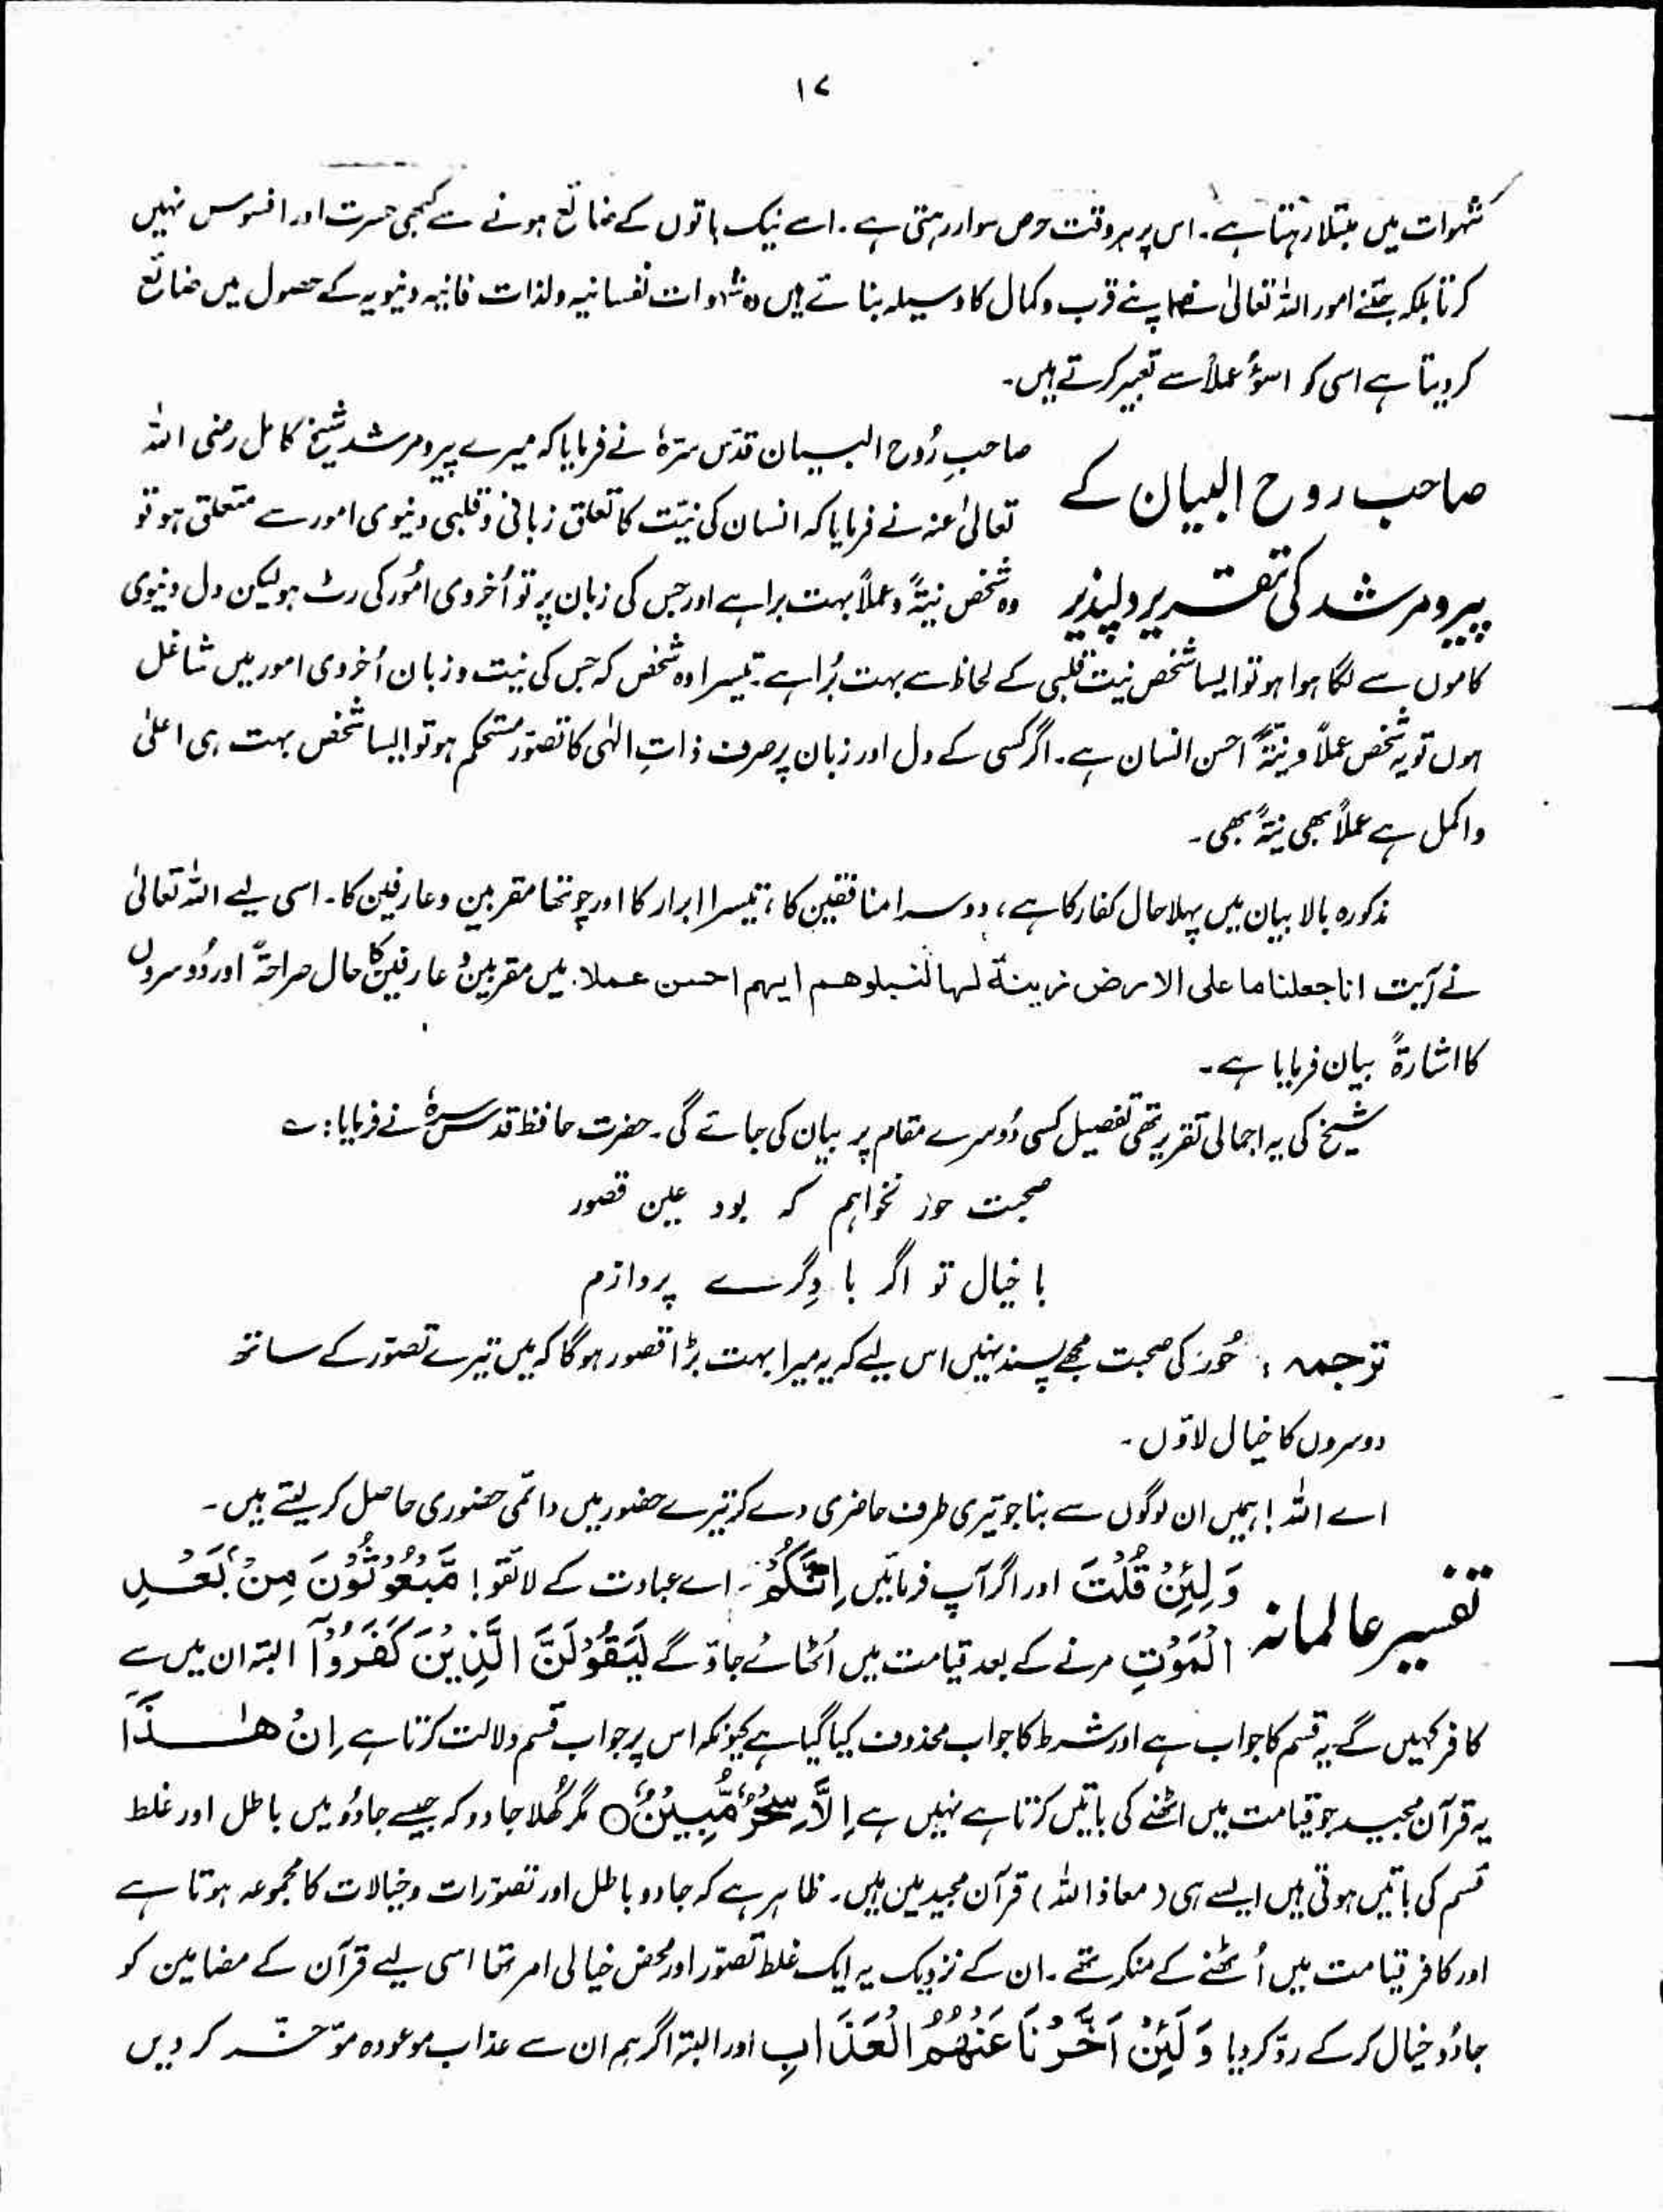 ۱۷
شہوات میں مبتلا رہتا ہے۔ اس پر ہر وقت حرص سوار رہتی ہے۔ اسے نیک باتوں کے ضائع ہونے سے کبھی حسرت اور افسوس نہیں
کرتا بلکہ جتنے امور اللہ تعالیٰ نے اپنے قرب و کمال کا وسیلہ بنائے ہیں وہ شہوات نفسانیہ ولذات فانیہ دنیویہ کے حصول میں ضائع
کر دیتا ہے اسی کو اسؤُ عملاً سے تعبیر کرتے ہیں۔
صاحب روح البیان کے
پیر و مرشد کی تقریر دلپذیر
صاحبِ رُوح البیان قدس سرّہٗ نے فرمایا کہ میرے پیر و مرشد شیخ کامل رضی اللہ
تعالیٰ عنہ نے فرمایا کہ انسان کی نیّت کا تعلق زبانی و قلبی دنیوی امور سے متعلق ہو تو
وہ شخص نیۃً و عملاً بہت برا ہے اور جس کی زبان پر تو اُخروی امُور کی رٹ ہو لیکن دل دنیوی
کاموں سے لگا ہوا ہو تو ایسا شخص نیت قلبی کے لحاظ سے بہت بُرا ہے۔ تیسرا وہ شخص کہ جس کی نیت و زبان اُخروی امور میں شاغل
ہوں تو یہ شخص عملاً و نیتۃً احسن انسان ہے۔ اگر کسی کے دل اور زبان پر صرف ذاتِ الہٰی کا تصوّر مستحکم ہو تو ایسا شخص بہت ہی اعلیٰ
واکمل ہے عملاً بھی نیۃً بھی۔
مذکورہ بالا بیان میں پہلا حال کفار کا ہے، دوسرا منافقین کا، تیسرا ابرار کا اور چوتھا مقربین و عارفین کا۔ اسی لیے اللہ تعالیٰ
نے آیت انا جعلنا ما علی الارض زینۃ لہا لنبلوھم ایہم احسن عملا۔ میں مقربین و عارفین کا حال صراحۃً اور دُوسروں
کا اشارۃً بیان فرمایا ہے۔
شیخ کی یہ اجمالی تقریر تھی تفصیل کسی دُوسرے مقام پر بیان کی جائے گی۔ حضرت حافظ قدس سرہٗ نے فرمایا: ے
صحبت حور نخواہم کہ بود عین قصور
با خیال تو اگر با دِگرے پردازم
ترجمہ : حُور کی صحبت مجھے پسند نہیں اس لیے کہ یہ میرا بہت بڑا قصور ہوگا کہ میں تیرے تصوّر کے ساتھ
دوسروں کا خیال لاؤں۔
اے اللہ! ہمیں ان لوگوں سے بنا جو تیری طرف حاضری دے کر تیرے حضور میں دائمی حضوری حاصل کر لیتے ہیں۔
تفسیر عالمانہ
وَلَئِنْ قُلْتَ اور اگر آپ فرمائیں اِنَّكُمْ۔ اے عبادت کے لائقو! مَّبْعُوْثُوْنَ مِنْۢ بَعْدِ
الْمَوْتِ مرنے کے بعد قیامت میں اُٹھائے جاؤ گے لَيَقُوْلَنَّ الَّذِيْنَ كَفَرُوْٓا البتہ ان میں سے
کافر کہیں گے یہ قسم کا جواب ہے اور شرط کا جواب محذوف کیا گیا ہے کیونکہ اس پر جواب قسم دلالت کرتا ہے اِنْ هٰذَآ
یہ قرآن مجید جو قیامت میں اٹھنے کی باتیں کرتا ہے نہیں ہے اِلَّا سِحْرٌ مُّبِيْنٌ ○ مگر کُھلا جادو کہ جیسے جادُو میں باطل اور غلط
قسم کی باتیں ہوتی ہیں ایسے ہی (معاذ اللہ) قرآن مجید میں ہیں۔ ظاہر ہے کہ جادو باطل اور تصوّرات و خیالات کا مجموعہ ہوتا ہے
اور کافر قیامت میں اُٹھنے کے منکر تھے۔ ان کے نزدیک یہ ایک غلط تصوّر اور محض خیالی امر تھا اسی لیے قرآن کے مضامین کو
جادُو خیال کر کے ردّ کر دیا وَلَئِنْ اَخَّرْنَا عَنْهُمُ الْعَذَابَ اور البتہ اگر ہم ان سے عذاب موعودہ مؤخر کر دیں